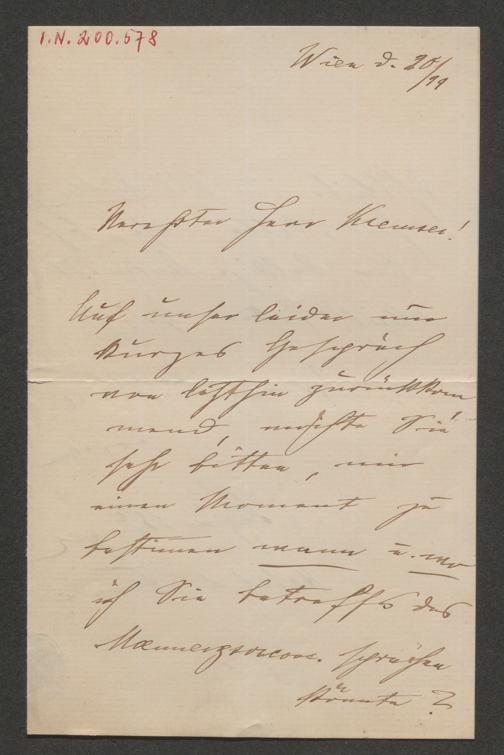 I.N. 200.578
Wien d. 20/
/99
Verehrter Herr Kremser!
Auf unser leider nur
kurzes Gespräch
von letzthin zurückkom
mend, möchte Sie
sehr bitten, mir
einen Moment zu
bestimmen wann u. wo
ich Sie betreffs des
sprechen
könnte?